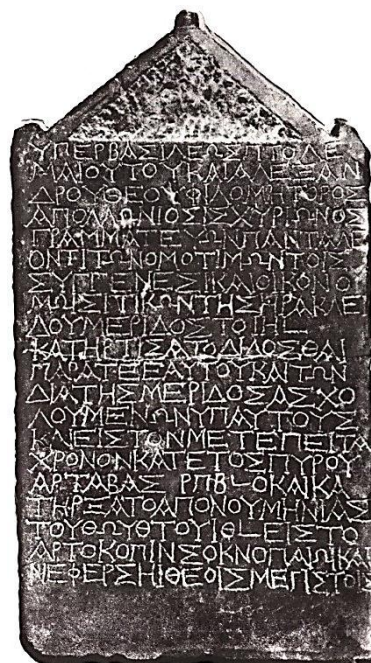 ΥΠΕΡΒΑΣΙΛΕΩΣΠΤΟΛΕ
ΜΑΙΟΥΤΟΥΚΑΙΑΛΕΞΑΝ
ΔΡΟΥΘΕΟΥΦΙΛΟΜΗΤΟΡΟΣ
ΑΠΟΛΛΩΝΙΟΣΙΣΧΥΡΙΩΝΟΣ
ΓΡΑΜΜΑΤΕΥΩΝΠΑΝΤΑΛΕ
ΟΝΤΙΤΩΝΟΜΟΤΙΜΩΝΤΟΙΣ
ΣΥΓΓΕΝΕΣΙΚΑΙΟΙΚΟΝΟ
ΜΩΙΣΙΤΙΚΩΝΤΗΣΗΡΑΚΛΕΙ
ΔΟΥΜΕΡΙΔΟΣΤΟΙΗL
ΚΑΤΗΡΓΙΣΑΤΟΔΙΔΟΣΘΑΙ
ΠΑΡΑΤΕΕΑΥΤΟΥΚΑΙΤΩΝ
ΔΙΑΤΗΣΜΕΡΙΔΟΣΑΣΧΟ
ΛΟΥΜΕΝΩΝΥΠΑΥΤΟΥΣ
ΚΑΙΕΙΣΤΟΝΜΕΤΕΠΕΙΤΑ
ΧΡΟΝΟΝΚΑΤΕΤΟΣΠΥΡΟΥ
ΑΡΤΑΒΑΣ ΡΠΒLΟΚΑΙΚΑ
ΤΗΡΞΑΤΟΑΠΟΝΟΥΜΗΝΙΑΣ
ΤΟΥΘΩΥΘΤΟΥΙΘLΕΙΣΤΟ
ΑΡΤΟΚΟΠΙΝΣΟΚΝΟΠΑΙΩΙΚΑΙ
ΝΕΦΕΡΣΗΙΘΕΟΙΣΜΕΓΙΣΤΟΙΣ